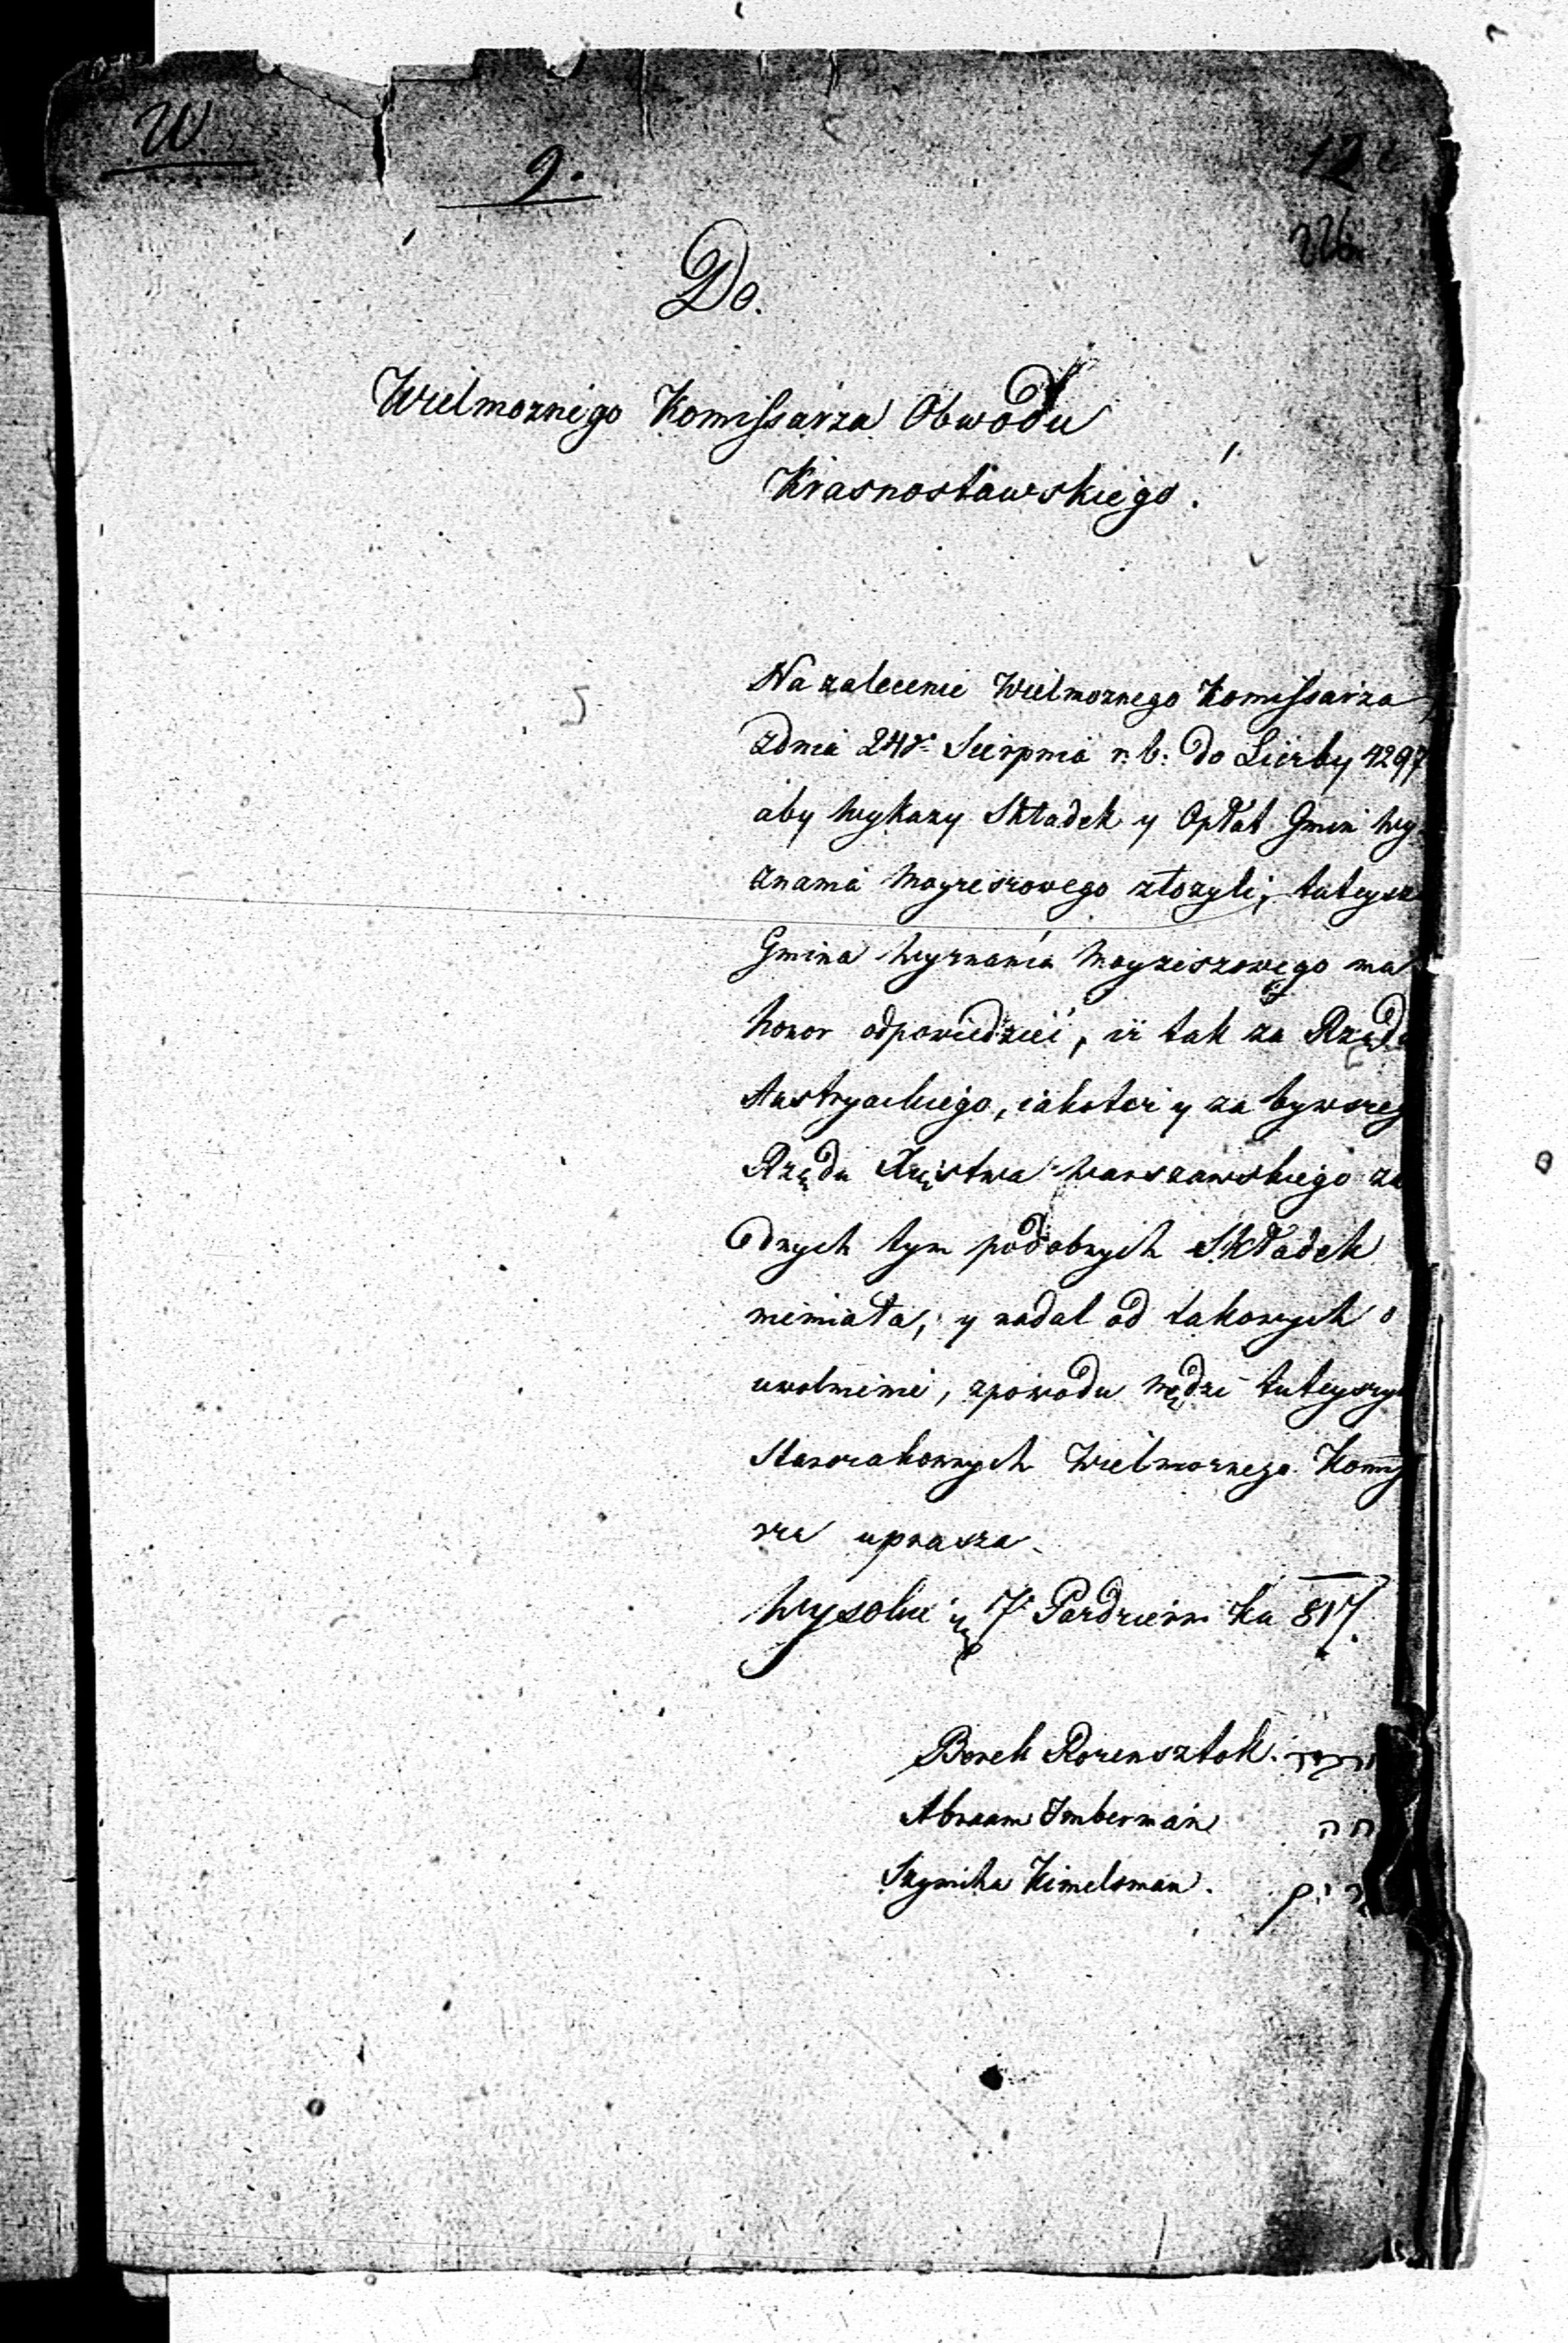 W.
9.
12
226.
Do.
Wielmoznego Komissarza Obwodu
Krasnostawskiego.
Na zalecenie Wielmoznego Komissarza
zdnia 24go Sierpnia r: b: do Liczby 4297
aby Wykazy Składek y Opłat Gmin Wy-
znania Moyzeszowego złozyli, tuteysz
Gmina Wyznania Moyzeszowego ma
honor odpowiedzieć, iż tak za Rządu
Austryackiego, iakoteż y za bywszeg
Rządu Xięstwa Warszawskiego ża
dnych tym podobnych Składek
niemiała, y nadal od takowych o
uwolnienie, zpowodu nędzi tuteyszy
Starozakonnych Wielmoznego Komis
rza uprasza.
Wysokie 7 Pazdziernika 817.
Berek Rorensztok.
Abraam Imberman
Szymcha Kimelsman.